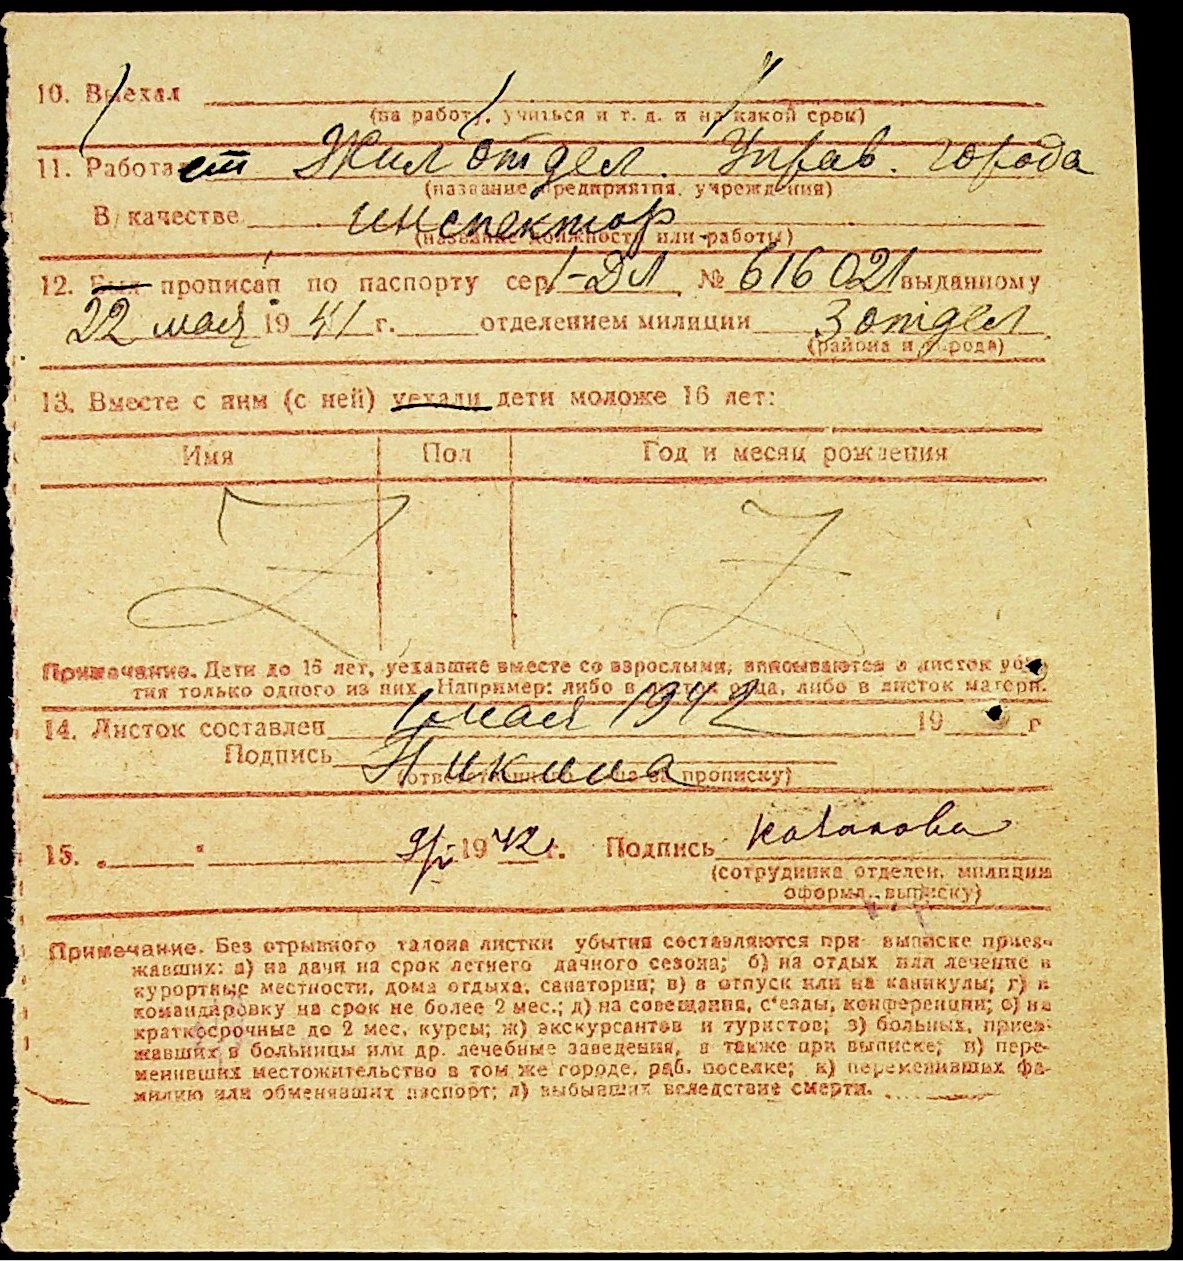 10. Выехал
(на работу, учиться и т. д. и на какой срок)
11. Работает Жил отдел. Управ. города
(название предприятия, учреждения)
В качестве инспектор
(название должности или работы)
12. Был прописан по паспорту сер. I-ДЛ № 616021 выданному
22 мая 1941 г. отделением милиции 3 отдел
(района и города)
13. Вместе с ним (с ней) уехали дети моложе 16 лет:
Имя Пол Год и месяц рождения
Z Z
Примечание. Дети до 16 лет, уехавшие вместе со взрослыми, вписываются в листок убы-
тия только одного из них. Например: либо в листок отца, либо в листок матери.
14. Листок составлен 1 мая 1942 19 г
Подпись
(ответственного лица за прописку)
15. „ " 9/V 1942 г. Подпись
(сотрудника отделен. милиции
оформл. выписку)
Примечание. Без отрывного талона листки убытия составляются при выписке приез-
жавших: а) на дачи на срок летнего дачного сезона; б) на отдых или лечение в
курортные местности, дома отдыха, санатории; в) в отпуск или на каникулы; г) в
командировку на срок не более 2 мес.; д) на совещания, с'езды, конференции; е) на
краткосрочные до 2 мес. курсы; ж) экскурсантов и туристов; з) больных, приез-
жавших в больницы или др. лечебные заведения, а также при выписке; и) пере-
менивших местожительство в том же городе, раб. поселке; к) переменивших фа-
милию или обменявших паспорт; л) выбывших вследствие смерти.